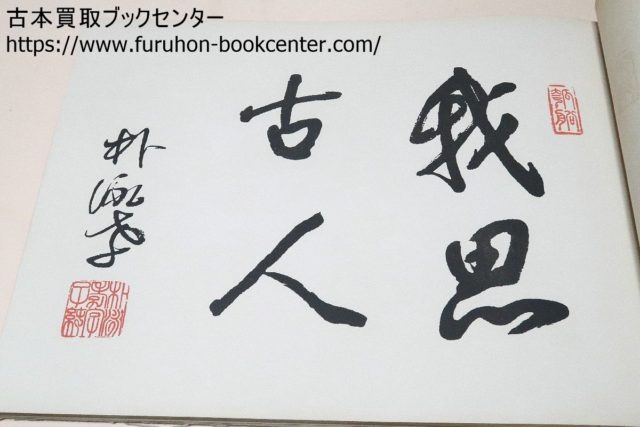 古本買取ブックセンター
https://www.furuhon-bookcenter.com/
我思
古人
朴泳孝